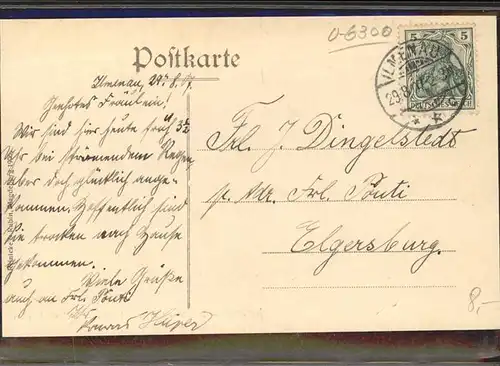 U-6300
Postkarte
5 5
ILMENAU
29.8.
Ilmenau, 29. 8. 
Geehrtes Fräulein!
Wir sind hier heute früh 3½
Uhr bei strömendem Regen,
aber doch glücklich ange-
kommen. Hoffentlich sind
Sie trocken nach Hause
gekommen.
Viele Grüße
auch an Frl. Ponti
Ihr
Frl. J. Dingelstedt
p. Adr. Frl. Ponti
Elgersburg.
8,-